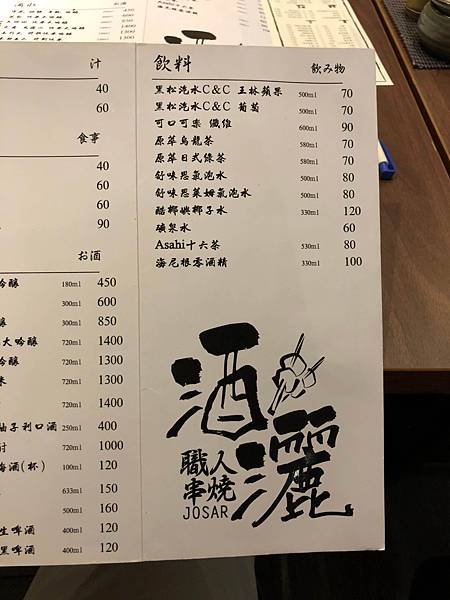 汁
40
60
食事
40
60
60
90
お酒
吟釀 180ml 450
300ml 600
釀 300ml 850
大吟釀 720ml 1400
吟釀 720ml 1300
米 720ml 1300
720ml 1400
柚子利口酒 250ml 400
720ml 1000
梅酒(杯) 100ml 120
633ml 150
500ml 160
生啤酒 400ml 120
黑啤酒 400ml 120
飲料 飲み物
黑松汽水C&C 王林蘋果 500ml 70
黑松汽水C&C 葡萄 500ml 70
可口可樂 纖維 600ml 90
原萃烏龍茶 580ml 70
原萃日式綠茶 580ml 70
舒味思氣泡水 500ml 80
舒味思萊姆氣泡水 500ml 80
酷椰嶼椰子水 330ml 120
礦泉水 60
Asahi十六茶 530ml 80
海尼根零酒精 330ml 100
酒灑
職人
串燒
JOSAR